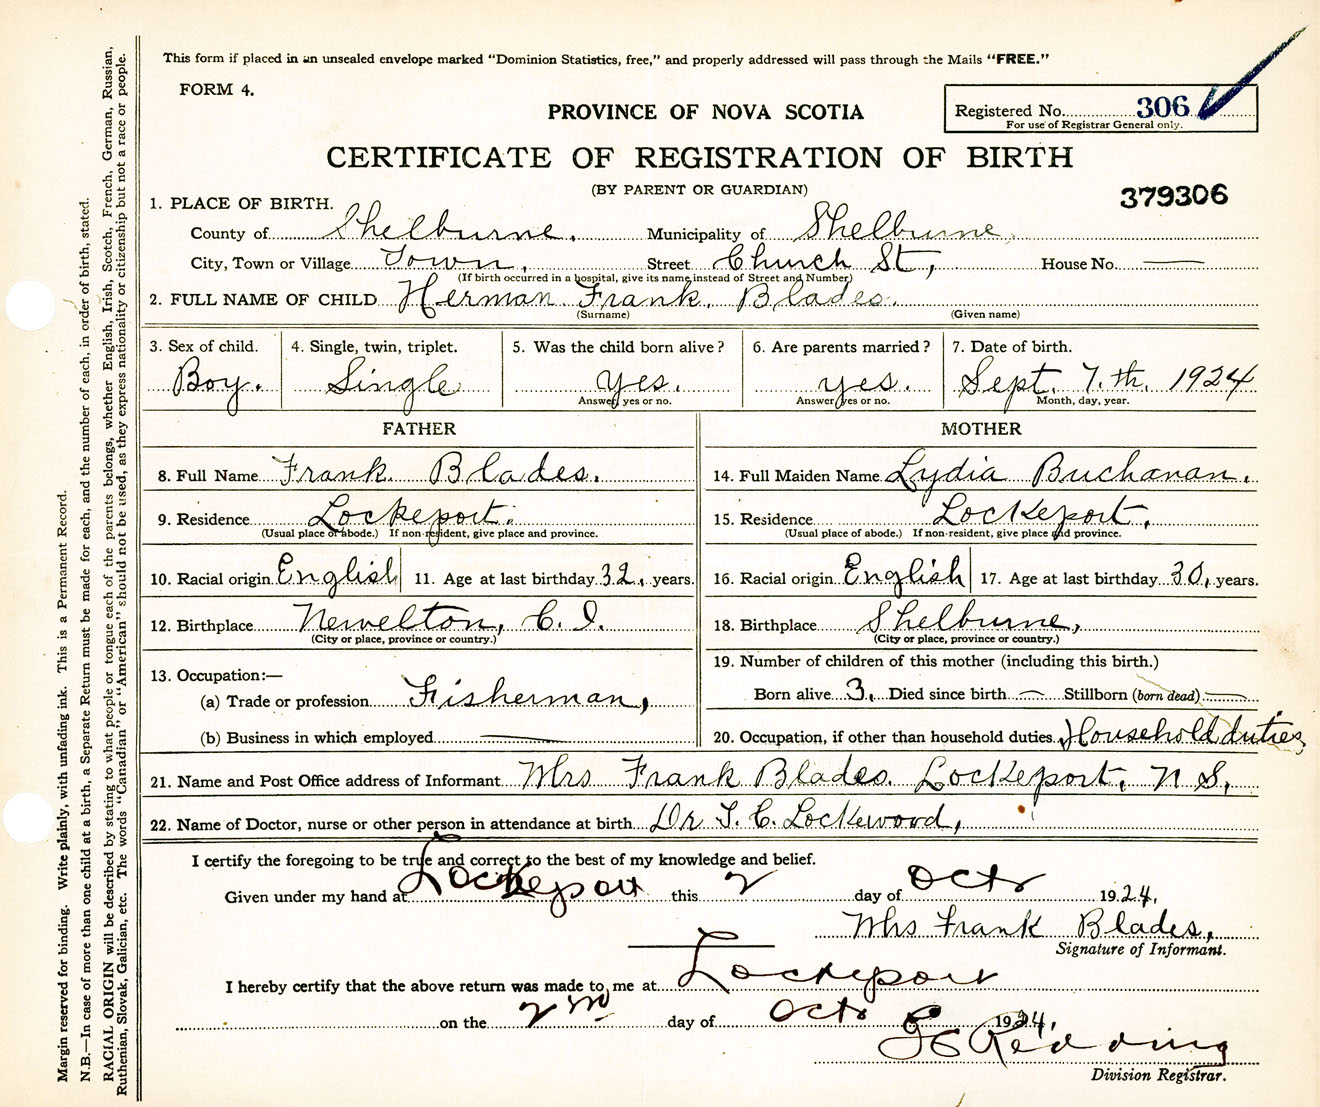 This form if placed in an unsealed envelope marked "Dominion Statistics, free," and properly addressed will pass through the Mails "FREE."
FORM 4.
PROVINCE OF NOVA SCOTIA
Registered No. 306
For use of Registrar General only.
CERTIFICATE OF REGISTRATION OF BIRTH
(BY PARENT OR GUARDIAN)
379306
1. PLACE OF BIRTH.
County of Shelburne. Municipality of Shelburne,
City, Town or Village Town, Street Church St, House No. —
(If birth occurred in a hospital, give its name instead of Street and Number)
2. FULL NAME OF CHILD Herman Frank. Blades.
(Surname) (Given name)
3. Sex of child. 4. Single, twin, triplet. 5. Was the child born alive? 6. Are parents married? 7. Date of birth.
Boy. Single yes. yes. Sept. 7.th. 1924
Answer yes or no. Answer yes or no. Month, day, year.
FATHER MOTHER
8. Full Name Frank. Blades. 14. Full Maiden Name Lydia Buchanan.
9. Residence Lockeport. 15. Residence Lockeport,
(Usual place of abode.) If non-resident, give place and province. (Usual place of abode.) If non-resident, give place and province.
10. Racial origin English 11. Age at last birthday 32. years. 16. Racial origin English 17. Age at last birthday 30, years.
12. Birthplace Newelton, C. I. 18. Birthplace Shelburne,
(City or place, province or country.) (City or place, province or country.)
19. Number of children of this mother (including this birth.)
13. Occupation:—
(a) Trade or profession Fisherman, Born alive 3. Died since birth — Stillborn (born dead) —
(b) Business in which employed — 20. Occupation, if other than household duties. Household duties,
21. Name and Post Office address of Informant Mrs Frank Blades. Lockeport, N S,
22. Name of Doctor, nurse or other person in attendance at birth Dr. C. Lockewood,
I certify the foregoing to be true and correct to the best of my knowledge and belief.
Given under my hand at Lockeport this 2 day of Octr 1924,
Mrs Frank Blades,
Signature of Informant.
I hereby certify that the above return was made to me at Lockeport
on the 2nd day of Octr 1924,
Redding
Division Registrar.
Margin reserved for binding. Write plainly, with unfading ink. This is a Permanent Record.
N.B.—In case of more than one child at a birth, a Separate Return must be made for each, and the number of each, in order of birth, stated.
RACIAL ORIGIN will be described by stating to what people or tongue each of the parents belongs, whether English, Irish, Scotch, French, German, Russian,
Ruthenian, Slovak, Galician, etc. The words "Canadian" or "American" should not be used, as they express nationality or citizenship but not a race or people.